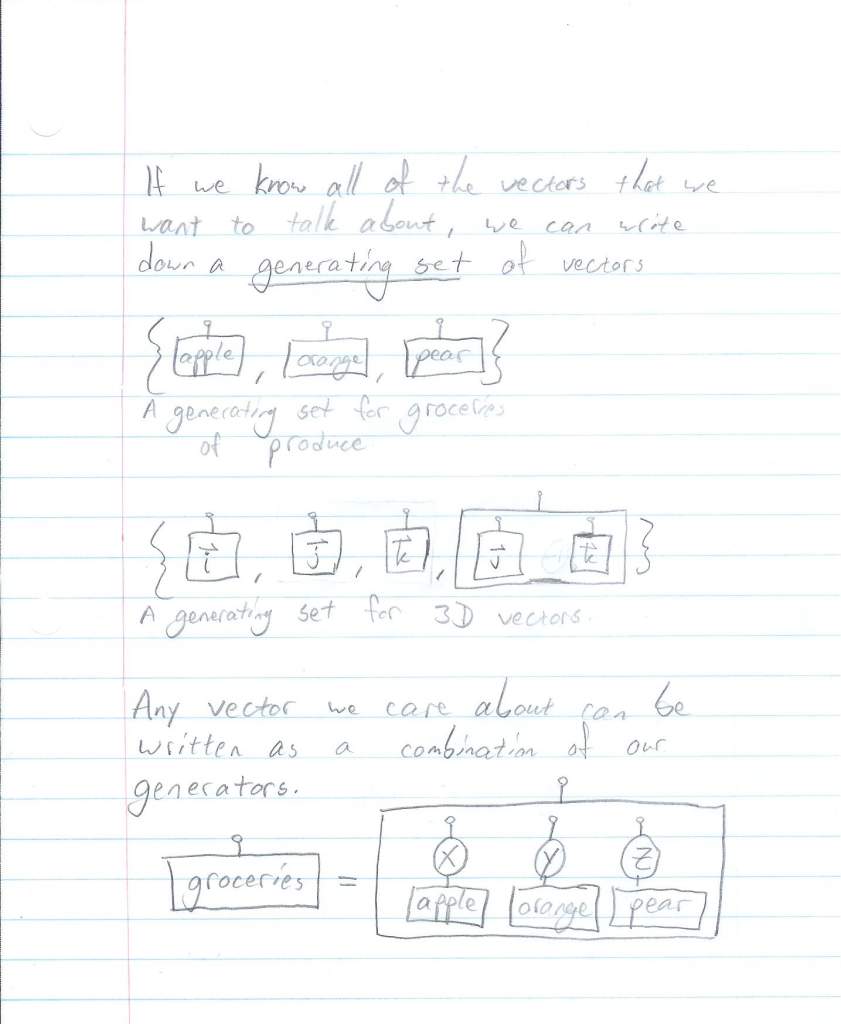 If we know all of the vectors that we
want to talk about, we can write
down a generating set of vectors
{ apple, orange, pear }
A generating set for groceries
of produce
{ i⃗, j⃗, k⃗, j⃗ k⃗ }
A generating set for 3D vectors.
Any vector we care about can be
written as a combination of our
generators.
x y z
groceries =
apple orange pear